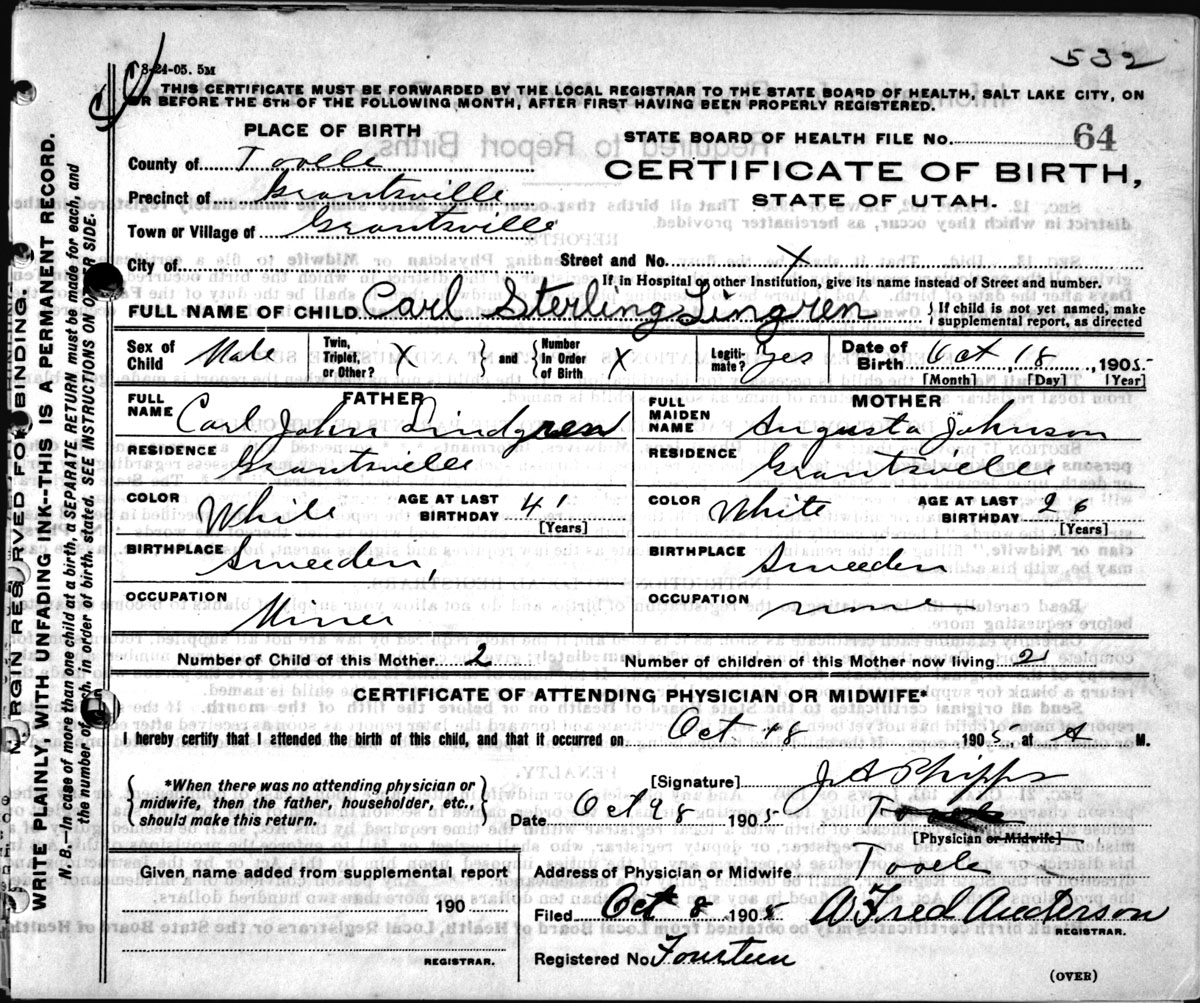 532
8-24-05. 5M
THIS CERTIFICATE MUST BE FORWARDED BY THE LOCAL REGISTRAR TO THE STATE BOARD OF HEALTH, SALT LAKE CITY, ON
OR BEFORE THE 5TH OF THE FOLLOWING MONTH, AFTER FIRST HAVING BEEN PROPERLY REGISTERED.
PLACE OF BIRTH
STATE BOARD OF HEALTH FILE No. 64
County of Tooele
CERTIFICATE OF BIRTH,
Precinct of Grantsville
STATE OF UTAH.
Town or Village of Grantsville
City of Street and No. X
If in Hospital or other Institution, give its name instead of Street and number.
FULL NAME OF CHILD Carl Sterling Lingren { If child is not yet named, make supplemental report, as directed
Sex of Child Male Twin, Triplet, or Other? X } and { Number In Order of Birth X Legiti- mate? Yes Date of Birth Oct 18, 1905
[Month] [Day] [Year]
FATHER
FULL NAME Carl John Lindgren
RESIDENCE Grantsville
COLOR White AGE AT LAST BIRTHDAY 41
[Years]
BIRTHPLACE Sweeden,
OCCUPATION Miner
MOTHER
FULL MAIDEN NAME Augusta Johnson
RESIDENCE Grantsville
COLOR White AGE AT LAST BIRTHDAY 26
[Years]
BIRTHPLACE Sweeden
OCCUPATION none
Number of Child of this Mother 2 Number of children of this Mother now living 2
CERTIFICATE OF ATTENDING PHYSICIAN OR MIDWIFE*
I hereby certify that I attended the birth of this child, and that it occurred on Oct 18 1905 at A M.
{ *When there was no attending physician or midwife, then the father, householder, etc., should make this return. }
[Signature] J A Phipps
Date Oct 1905 Tooele
[Physician or Midwife]
Given name added from supplemental report
190
REGISTRAR.
Address of Physician or Midwife Tooele
Filed Oct 8 190 A Fred Anderson
REGISTRAR.
Registered No. Fourteen
(OVER)
MARGIN RESERVED FOR BINDING.
WRITE PLAINLY, WITH UNFADING INK—THIS IS A PERMANENT RECORD.
N. B.—In case of more than one child at a birth, a SEPARATE RETURN must be made for each, and
the number of each, in order of birth, stated. SEE INSTRUCTIONS ON OTHER SIDE.